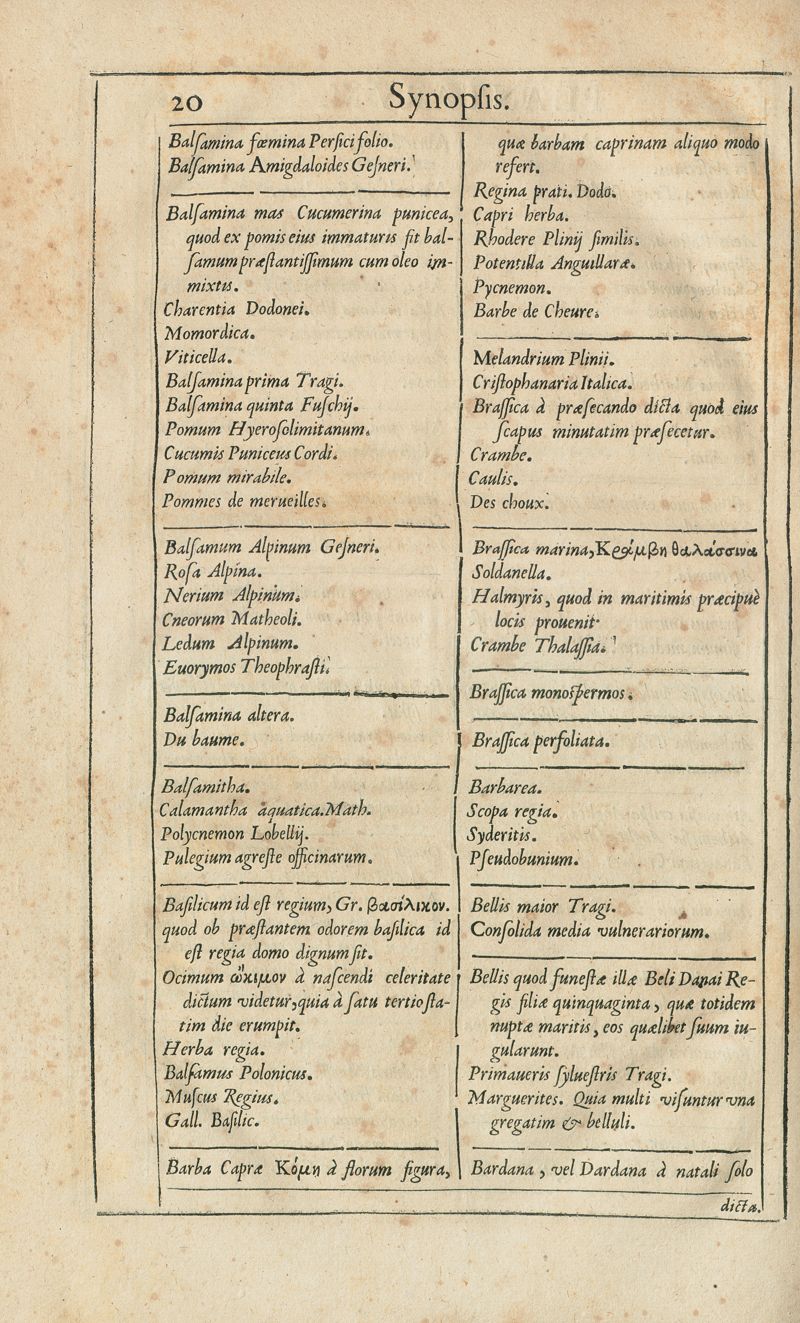 20
Synopsis.
Balſamina fœmina Perſici folio.
Balſamina Amigdaloides Geſneri.
Balſamina mas Cucumerina punicea,
quod ex pomis eius immaturis fit bal-
ſamum præſtantiſſimum cum oleo im-
mixtis.
Charentia Dodonei.
Momordica.
Viticella.
Balſamina prima Tragi.
Balſamina quinta Fuſchij.
Pomum Hyeroſolimitanum.
Cucumis Puniceus Cordi.
Pomum mirabile.
Pommes de merueilles.
Balſamum Alpinum Geſneri.
Roſa Alpina.
Nerium Alpinum.
Cneorum Matheoli.
Ledum Alpinum.
Euorymos Theophraſti.
Balſamina altera.
Du baume.
Balſamitha.
Calamantha aquatica. Math.
Polycnemon Lobellij.
Pulegium agreſte officinarum.
Baſilicum id eſt regium, Gr. βασίλικον.
quod ob præſtantem odorem baſilica id
eſt regia domo dignum ſit.
Ocimum ὤκιμον à naſcendi celeritate
dictum videtur, quia à ſatu tertio ſta-
tim die erumpit.
Herba regia.
Balſamus Polonicus.
Muſcus Regius.
Gall. Baſilic.
Barba Capræ Κόμη à florum figura,
quæ barbam caprinam aliquo modo
refert.
Regina prati. Dodo.
Capri herba.
Rhodere Plinij ſimilis.
Potentilla Anguillaræ.
Pycnemon.
Barbe de Cheure.
Melandrium Plinii.
Criſtophanaria Italica.
Braſſica à præſecando dicta quod eius
ſcapus minutatim præſecetur.
Crambe.
Caulis.
Des choux.
Braſſica marina, Κράμβη θαλάσσινα
Soldanella.
Halmyris, quod in maritimis præcipuè
locis prouenit.
Crambe Thalaſſia.
Braſſica monospermos.
Braſſica perfoliata.
Barbarea.
Scopa regia.
Syderitis.
Pſeudobunium.
Bellis maior Tragi.
Conſolida media vulnerariorum.
Bellis quod funeſtæ illæ Beli Danai Re-
gis filiæ quinquaginta, quæ totidem
nuptæ maritis, eos quælibet ſuum iu-
gularunt.
Primaueris ſylueſtris Tragi.
Marguerites. Quia multi viſuntur vna
gregatim & belluli.
Bardana, vel Dardana à natali ſolo
dictæ.